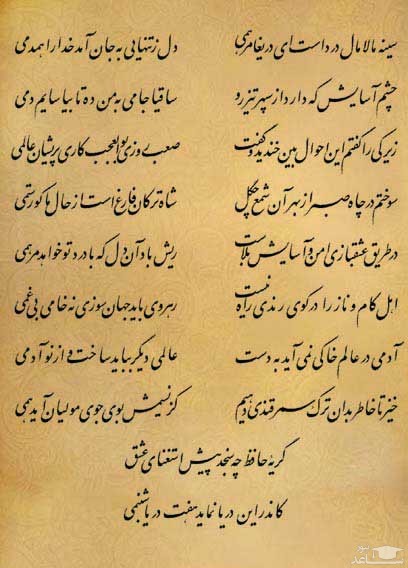 سینه مالامال درد است ای دریغا مرهمی دل ز تنهایی به جان آمد خدا را همدمی
چشم آسایش که دارد از سپهر تیزرو ساقیا جامی به من ده تا بیاسایم دمی
زیرکی را گفتم این احوال بین خندید و گفت صعب روزی بوالعجب کاری پریشان عالمی
سوختم در چاه صبر از بهر آن شمع چگل شاه ترکان فارغ است از حال ما کو رستمی
در طریق عشقبازی امن و آسایش بلاست ریش باد آن دل که با درد تو خواهد مرهمی
اهل کام و ناز را در کوی رندی راه نیست رهروی باید جهان سوزی نه خامی بی غمی
آدمی در عالم خاکی نمی آید به دست عالمی دیگر بباید ساخت و از نو آدمی
خیز تا خاطر بدان ترک سمرقندی دهیم کز نسیمش بوی جوی مولیان آید همی
گریهٔ حافظ چه سنجد پیش استغنای عشق
کاندر این دریا نماید هفت دریا شبنمی